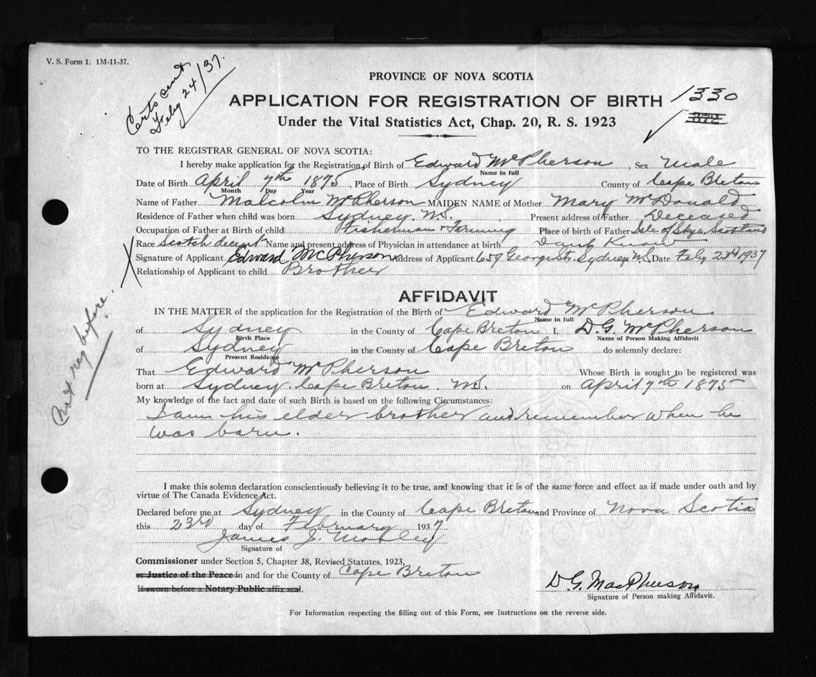 V. S. Form 1. 1M-11-37.
Certs sent
Feby 24/37.
PROVINCE OF NOVA SCOTIA
APPLICATION FOR REGISTRATION OF BIRTH 1330
Under the Vital Statistics Act, Chap. 20, R. S. 1923
TO THE REGISTRAR GENERAL OF NOVA SCOTIA:
I hereby make application for the Registration of Birth of Edward McPherson, Sex Male
Name in full
Date of Birth April 7th 1875, Place of Birth Sydney County of Cape Breton
Month Day Year
Name of Father Malcolm McPherson MAIDEN NAME of Mother Mary McDonald
Residence of Father when child was born Sydney N.S. Present address of Father Deceased
Occupation of Father at Birth of child Fisherman & Farming Place of Birth of Father Isle of Skye Scotland
Race Scotch decent Name and present address of Physician in attendance at birth Dont Know
Signature of Applicant Edward McPherson Address of Applicant 659 George St. Sydney N.S. Date Feby 23rd 1937
Relationship of Applicant to child Brother
Not reg before.
AFFIDAVIT
IN THE MATTER of the application for the Registration of the Birth of Edward McPherson
Name in full
of Sydney in the County of Cape Breton I, D. G. McPherson
Birth Place Name of Person Making Affidavit
of Sydney in the County of Cape Breton do solemnly declare:
Present Residence
That Edward McPherson Whose Birth is sought to be registered was
born at Sydney. Cape Breton. N.S. on April 7th 1875
My knowledge of the fact and date of such Birth is based on the following Circumstances:
I am his elder brother and remember when he
was born.
I make this solemn declaration conscientiously believing it to be true, and knowing that it is of the same force and effect as if made under oath and by
virtue of The Canada Evidence Act.
Declared before me at Sydney in the County of Cape Breton and Province of Nova Scotia
this 23rd day of February 1937
James J.
Signature of
Commissioner under Section 5, Chapter 38, Revised Statutes, 1923,
or Justice of the Peace in and for the County of Cape Breton
If sworn before a Notary Public affix seal.
D. G. MacPherson
Signature of Person making Affidavit.
For Information respecting the filling out of this Form, see Instructions on the reverse side.